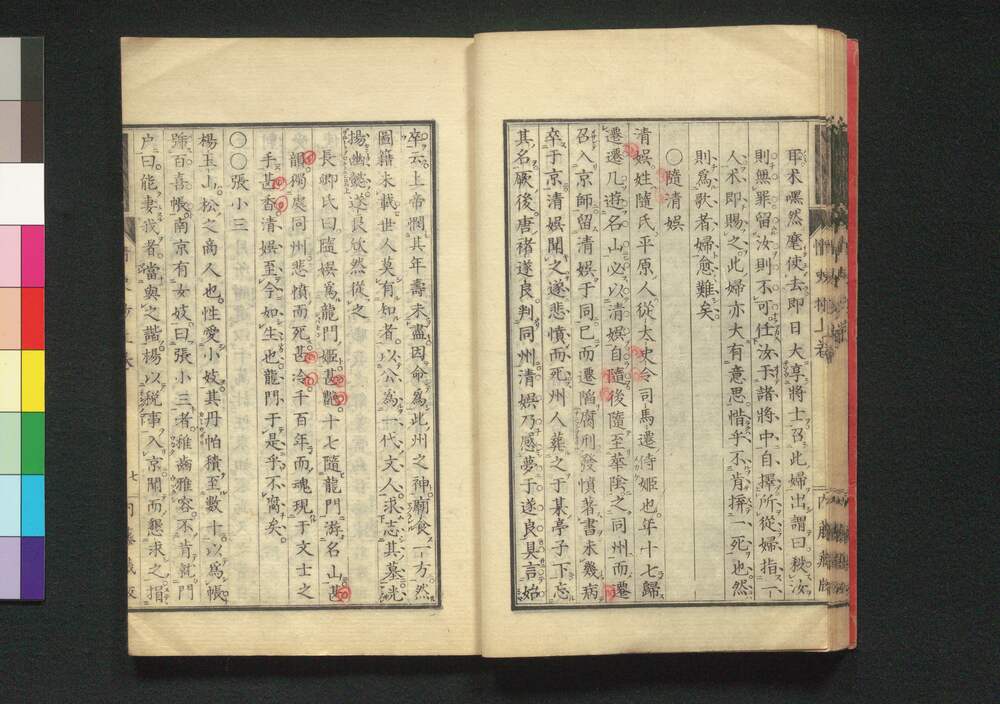 耳术嘿然麾使去即日大享將士召此婦出謂曰殺汝
則無罪留汝則不可任汝于諸將中自擇所從婦指一
人术即賜之此婦亦大有意思惜乎不肯拚一死也然
則爲歌者婦愈難矣
〇隨清娛
清娛姓隨氏平原人從太史令司馬遷侍姬也年十七歸
遷遷凡遊名山必以清娛自隨後隨至華陰之同州而遷
召入京師留清娛于同已而遷陷腐刑發憤著書未幾病
卒于京清娛聞之遂悲憤而死州人葬之于某亭子下忘
其名厥後唐褚遂良判同州清娛乃感夢于遂良具言始
卒云上帝憫其年壽未盡因命爲此州之神廟食一方然
圖籍未載世人莫有知者以公爲一代文人求志其墓光
揚幽懿遂良欣然從之
長卿氏曰隨娛爲龍門姬甚艷十七隨龍門游名山甚
韻獨處同州悲憤而死甚冷千百年而魂現于文士之
手甚香清娛至今如生也龍門于是乎不腐矣
〇〇張小三
楊玉山松之商人也性愛小妓其丹帕積至數十以爲帳
號百喜帳南京有女妓曰張小三者稚齒雅容不肯就門
户曰能妻我者當與之諧楊以稅事入京聞而懇求之捐
七